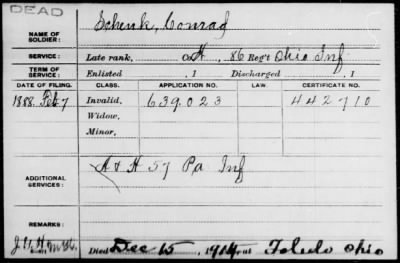 DEAD
NAME OF SOLDIER: Schenk, Conrad
SERVICE: Late rank, Co H, 86 Reg't Ohio Inf
TERM OF SERVICE: Enlisted , 1 Discharged , 1
DATE OF FILING. CLASS. APPLICATION NO. LAW. CERTIFICATE NO.
1888 Feb 7 Invalid, 639.023 442710
Widow,
Minor,
ADDITIONAL SERVICES: A & H 57 Pa Inf
REMARKS:
Died Dec 15, 1914, at Toledo Ohio